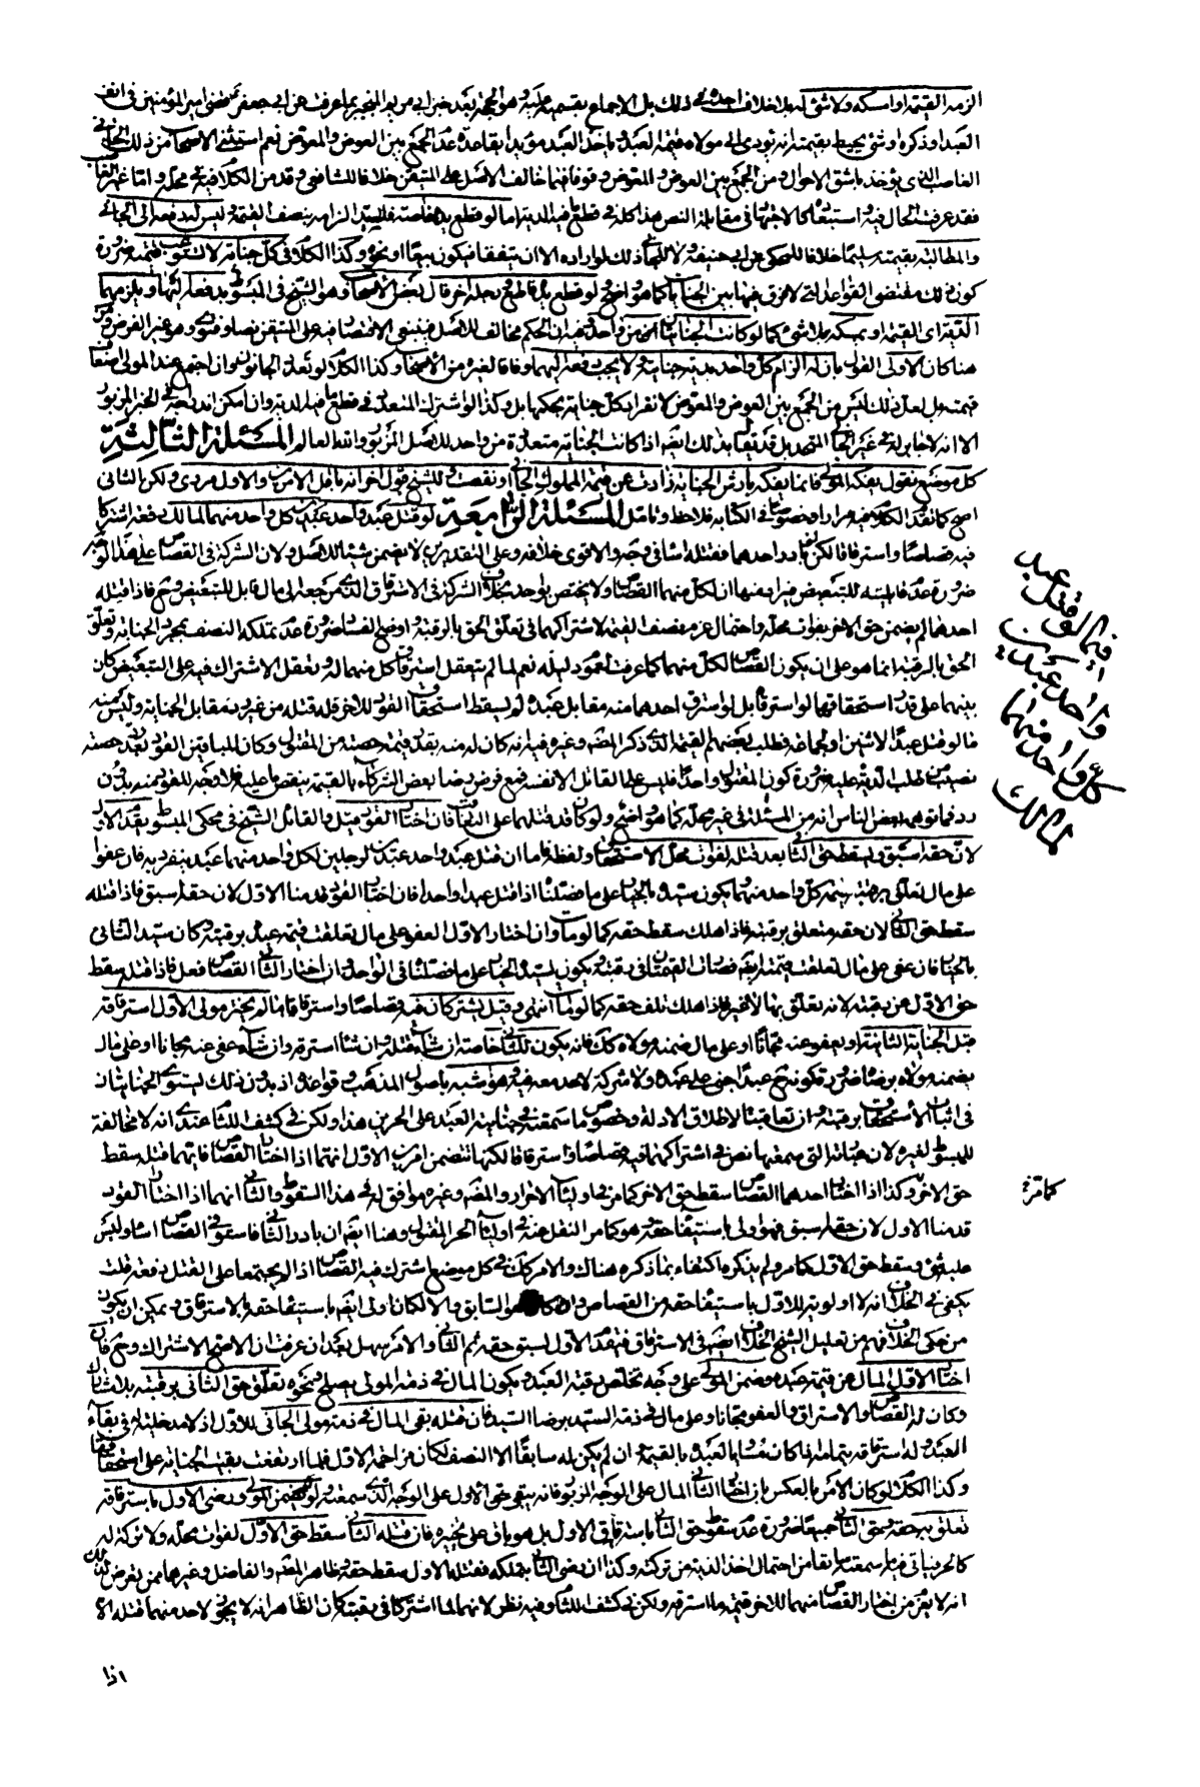 الزمه القيمة او امسكه ولا شئ له بلا خلاف اجده في ذلك بل الاجماع بقسميه عليه وهو الحجة بعد خبر ابي مريم المنجبر بما عرفت عن ابي جعفر قضى امير المؤمنين في انف
العبد او ذكره او شئ يحيط بقيمته انه يؤدي الى مولاه قيمة العبد وياخذ العبد مؤيدا بقاعدة عدم الجمع بين العوض والمعوض نعم استثنى الاصحاب من ذلك الجاني
الغاصب الذي يؤخذ باشق الاحوال ومن الجمع بين العوض والمعوض وقوفا فيما خالف الاصل على المتيقن خلافا للشافعي وقد مر الكلام فيه في محله واما غير الغاصب
فقد عرفت الحال فيه واستبعاده كالاجتهاد في مقابلة النص هذا كله في قطع ما فيه الدية اما لو قطع يده خاصة فللسيد الزامه بنصف القيمة وليس له دفعه الى الجاني
والمطالبة بقيمته سليما خلافا للمحكي عن ابي حنيفة ولا للجاني ذلك لو اراده الا ان يتفقا فيكون بيعا او نحوه وكذا الكلام في كل جناية لا تستوعب قيمته ضرورة
كون ذلك مقتضى القواعد التي لا فرق فيها بين الجنايات كما هو واضح ولو قطع يده قاطع ورجله آخر قال بعض الاصحاب وهو الشيخ في المبسوط يدفعه اليهما ويلزمهما
الدية اي القيمة او يمسكه بلا شئ كما لو كانت الجنايتان من واحد وفيه ان الحكم مخالف للاصل فينبغي الاقتصار فيه على المتيقن نصا وفتوى وهو غير الفرض ومن
هنا كان الاولى القول بان له الزام كل واحد بدية جنايته ولا يجب دفعه اليهما وفاقا لغيره من الاصحاب وكذا الكلام لو تعدد الجانون وان اجتمع عند المولى اضعاف
قيمته بل لعل ذلك ليس من الجمع بين العوض والمعوض لانفراد كل جناية بحكمها بل وكذا لو اشترك المتعدد في قطع ما فيه الدية وان امكن اندراجه في الخبر المزبور
الا انه لا جابر له في غير الجاني المتحد بل قد يقال بذلك ايضا اذا كانت الجناية متعددة من واحد للاصل المزبور والله العالم المسئلة الثالثة
كل موضع نقول يفكه المولى فانما يفكه بارش الجناية زادت عن قيمة المملوك الجاني او نقصت وللشيخ قول اخر انه باقل الامرين والاول مروي ولكن الثاني
اصح كما تقدم الكلام فيه مرارا وخصوصا في الكتابة فلاحظ وتامل المسئلة الرابعة لو قتل عبد واحد عبدين كل واحد منهما لمالك دفعة اشتركا
فيه قصاصا واسترقاقا لكن لو بادر احدهما فقتله اساء في وجه والاقوى خلافه وعلى التقديرين لا يضمن شيئا للاصل ولان الشركة في القصاص على هذا الوجه غير
ضرورة عدم قابليته للتبعيض فيراد منها ان لكل منهما القصاص ولا يختص بواحد بخلاف الشركة في الاسترقاق الذي مرجعه الى مال قابل للتبعيض وح فاذا قتله
احدهما لم يضمن حق الاخر بفوات محله واحتمال غرمه نصف القيمة لاشتراكهما في تعلق الحق بالرقبة واضح الفساد ضرورة عدم تملكه النصف بمجرد الجناية وتعلق
الحق بالرقبة انما هو على ان يكون القصاص لكل منهما كما عرفت لعموم دليله نعم لما لم يتعقل استرقاق كل منهما له وتعقل الاشتراك فيه على التبعيض كان
بينهما على قدر استحقاقهما لو استرقاه بل لو استرق احدهما منه مقابل عبده لم يسقط استحقاق القود للاخر فله قتله من غير رد مقابل الجناية وليس كمنه
ما لو قتل عبدا لاثنين او لجماعة فطلب بعضهم القيمة الذي ذكر المصنف وغيره فيه انه كان له منه بقدر قيمة حصته من المقتول وكان للباقين القود بعد رد حصته
نصيب من طلب الدية عليه ضرورة كون المقتول واحدا فليس على القاتل الا نفسه فمع فرض رضا بعض الشركاء بالقيمة ينقص ما عليه فلا وجه للقود منه بدون
رد فما توهمه بعض الناس انه من المسئلة في غير محله كما هو واضح ولو كان قد قتلهما على التعاقب فان اختار القود قيل والقائل الشيخ في محكي المبسوط يقدم الاول
لان حقه اسبق ويسقط حق الثاني بعد قتله لفوات محل الاستحقاق ولفظه فاما ان قتل عبد واحد عبدين لرجلين لكل واحد منهما عبد ينفرد به فان عفوا
على مال تعلق برقبته قيمة كل واحد منهما ويكون سيده بالخيار على ما فصلناه اذا قتل عبدا واحدا فان اختار القود قدمنا الاول لان حقه اسبق فاذا قتله
سقط حق الثاني لان حقه متعلق برقبته فاذا هلك سقط حقه كما لو مات وان اختار الاول العفو على مال تعلقت قيمة عبده برقبته وكان سيد الثاني
بالخيار فان عفى على مال تعلقت قيمته ايضا فصارت القيمتان في رقبته ويكون لسيده الخيار على ما فصلناه في الواحد وان اختار الثاني القصاص فعل فاذا قتل سقط
حق الاول عن رقبته لانه تعلق بها لا غير فاذا هلك تلف حقه كما لو مات انتهى وقيل يشتركان فيه قصاصا واسترقاقا ما لم يختر مولى الاول استرقاقه
قبل الجناية الثانية او يعفو عنه مجانا او على مال ضمنه مولاه كك فانه يكون للثاني خاصة ان شاء قتله وان شاء استرقه وان شاء عفى عنه مجانا او على مال
يضمنه مولاه برضاه ضرورة كونه ح عبدا جنى على عبده ولا شركة لاحد معه فيه وهو اشبه باصول المذهب وقواعده اذ بدون ذلك تستوي الجنايتان
في اثبات الاستحقاق برقبته وان تعاقبتا لاطلاق الادلة وخصوص ما سمعته في جناية العبد على الحرين هذا ولكن في كشف اللثام عندي انه لا مخالفة
للمبسوط لغيره لان عبارته التي سمعتها نص في اشتراكهما فيه قصاصا واسترقاقا لكنها تتضمن امرين الاول انهما اذا اختارا القصاص فايهما قتله سقط
حق الاخر وكذا اذا اختار احدهما القصاص سقط حق الاخر كما مر في اولياء الاحرار والمصنف وغيره موافق له في هذا السقوط والثاني انهما اذا اختارا القود
قدمنا الاول لان حقه اسبق فهو اولى باستيفاء حقه وهو كما مر النقل عنه في اولياء الحر المقتول وهنا ايضا ان بادر الثاني فاستوفى القصاص اساء وليس
عليه شئ وسقط حق الاول كما مر ولم يذكره اكتفاء بما ذكره هناك والامر كك في كل موضع اشترك فيه القصاص اذا لم يجتمعا على القتل دفعة قلت
يكفي في الخلاف انه لا اولوية للاول باستيفاء حقه من القصاص وان كان هو السابق والا لكان اولى ايضا باستيفاء حقه بالاسترقاق ويمكن ان يكون
من حكى الخلاف فهم من تعليل الشيخ الخلاف ايضا في الاسترقاق فيقدم الاول لسبق حقه ثم الثاني والامر سهل بعد ان عرفت ان الاصح الاشتراك وح فان
اختار الاول المال عن قيمة عبده وضمن المولى على وجه تخلص رقبة العبد ويكون المال في ذمة المولى بصلح ونحوه تعلق حق الثاني برقبته بلا شك
وكان له القصاص والاسترقاق والعفو مجانا وعلى مال في ذمة السيد برضا السيد فان قتله بقي المال في ذمة مولى الجاني للاول اذ لا مدخلية في بقاء
العبد وله استرقاقه بتمامه اذا كان مساويا لعبده بالقيمة وان لم يكن له سابقا الا النصف لكان مزاحمة الاول فلما ارتفعت بقيت الجناية على استحقاقها
وكذا الكلام لو كان الامر بالعكس بان اختار الثاني المال على الوجه المزبور فانه يبقى حق الاول على الوجه الذي سمعته ولو لم يضمن المولى ورضى الاول باسترقاقه
تعلق به حقه وحق الثاني جميعا ضرورة عدم سقوط حق الثاني باسترقاق الاول بل هو باق على تخييره فان قتله الثاني سقط حق الاول لفوات محله ولا تركة له
كالحر فياتي فيه ما سمعته سابقا من احتمال اخذ الدية من تركته وكذا ان رضى الثاني بتملكه فقتله الاول سقط حقه وظاهر المصنف والفاضل وغيرهما ممن تعرض لذلك
انه لا يغرم من اختار القصاص منهما للاخر قيمة ما استرقه ولكن في كشف اللثام وفيه نظر لانهما لما اشتركا في رقبته كان الظاهر انه لا يجوز لاحد منهما قتله الا
اذا
فيما لو قتل عبد
واحد عبدين
كل واحد منهما
لمالك
كما تره